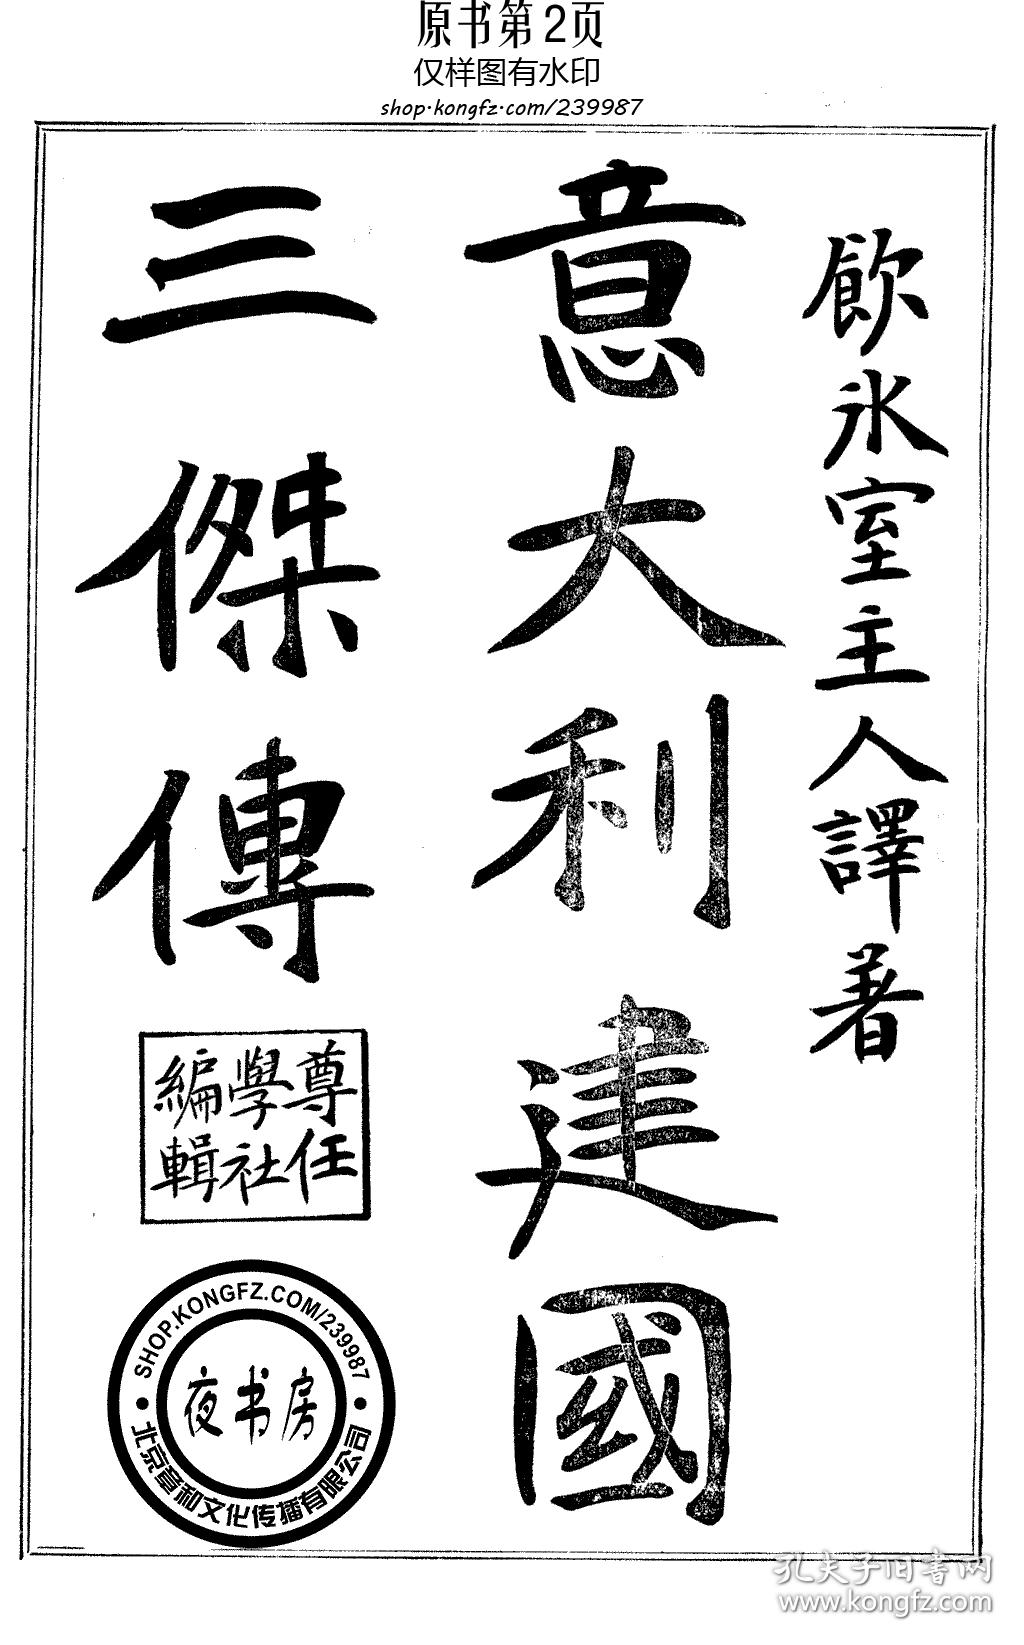 原书第2页
仅样图有水印
shop.kongfz.com/239987
飲冰室主人譯著
意大利建國
三傑傳
尊任
學社
編輯
SHOP.KONGFZ.COM/239987
夜书房
北京章和文化传播有限公司
孔夫子旧书网
www.kongfz.com